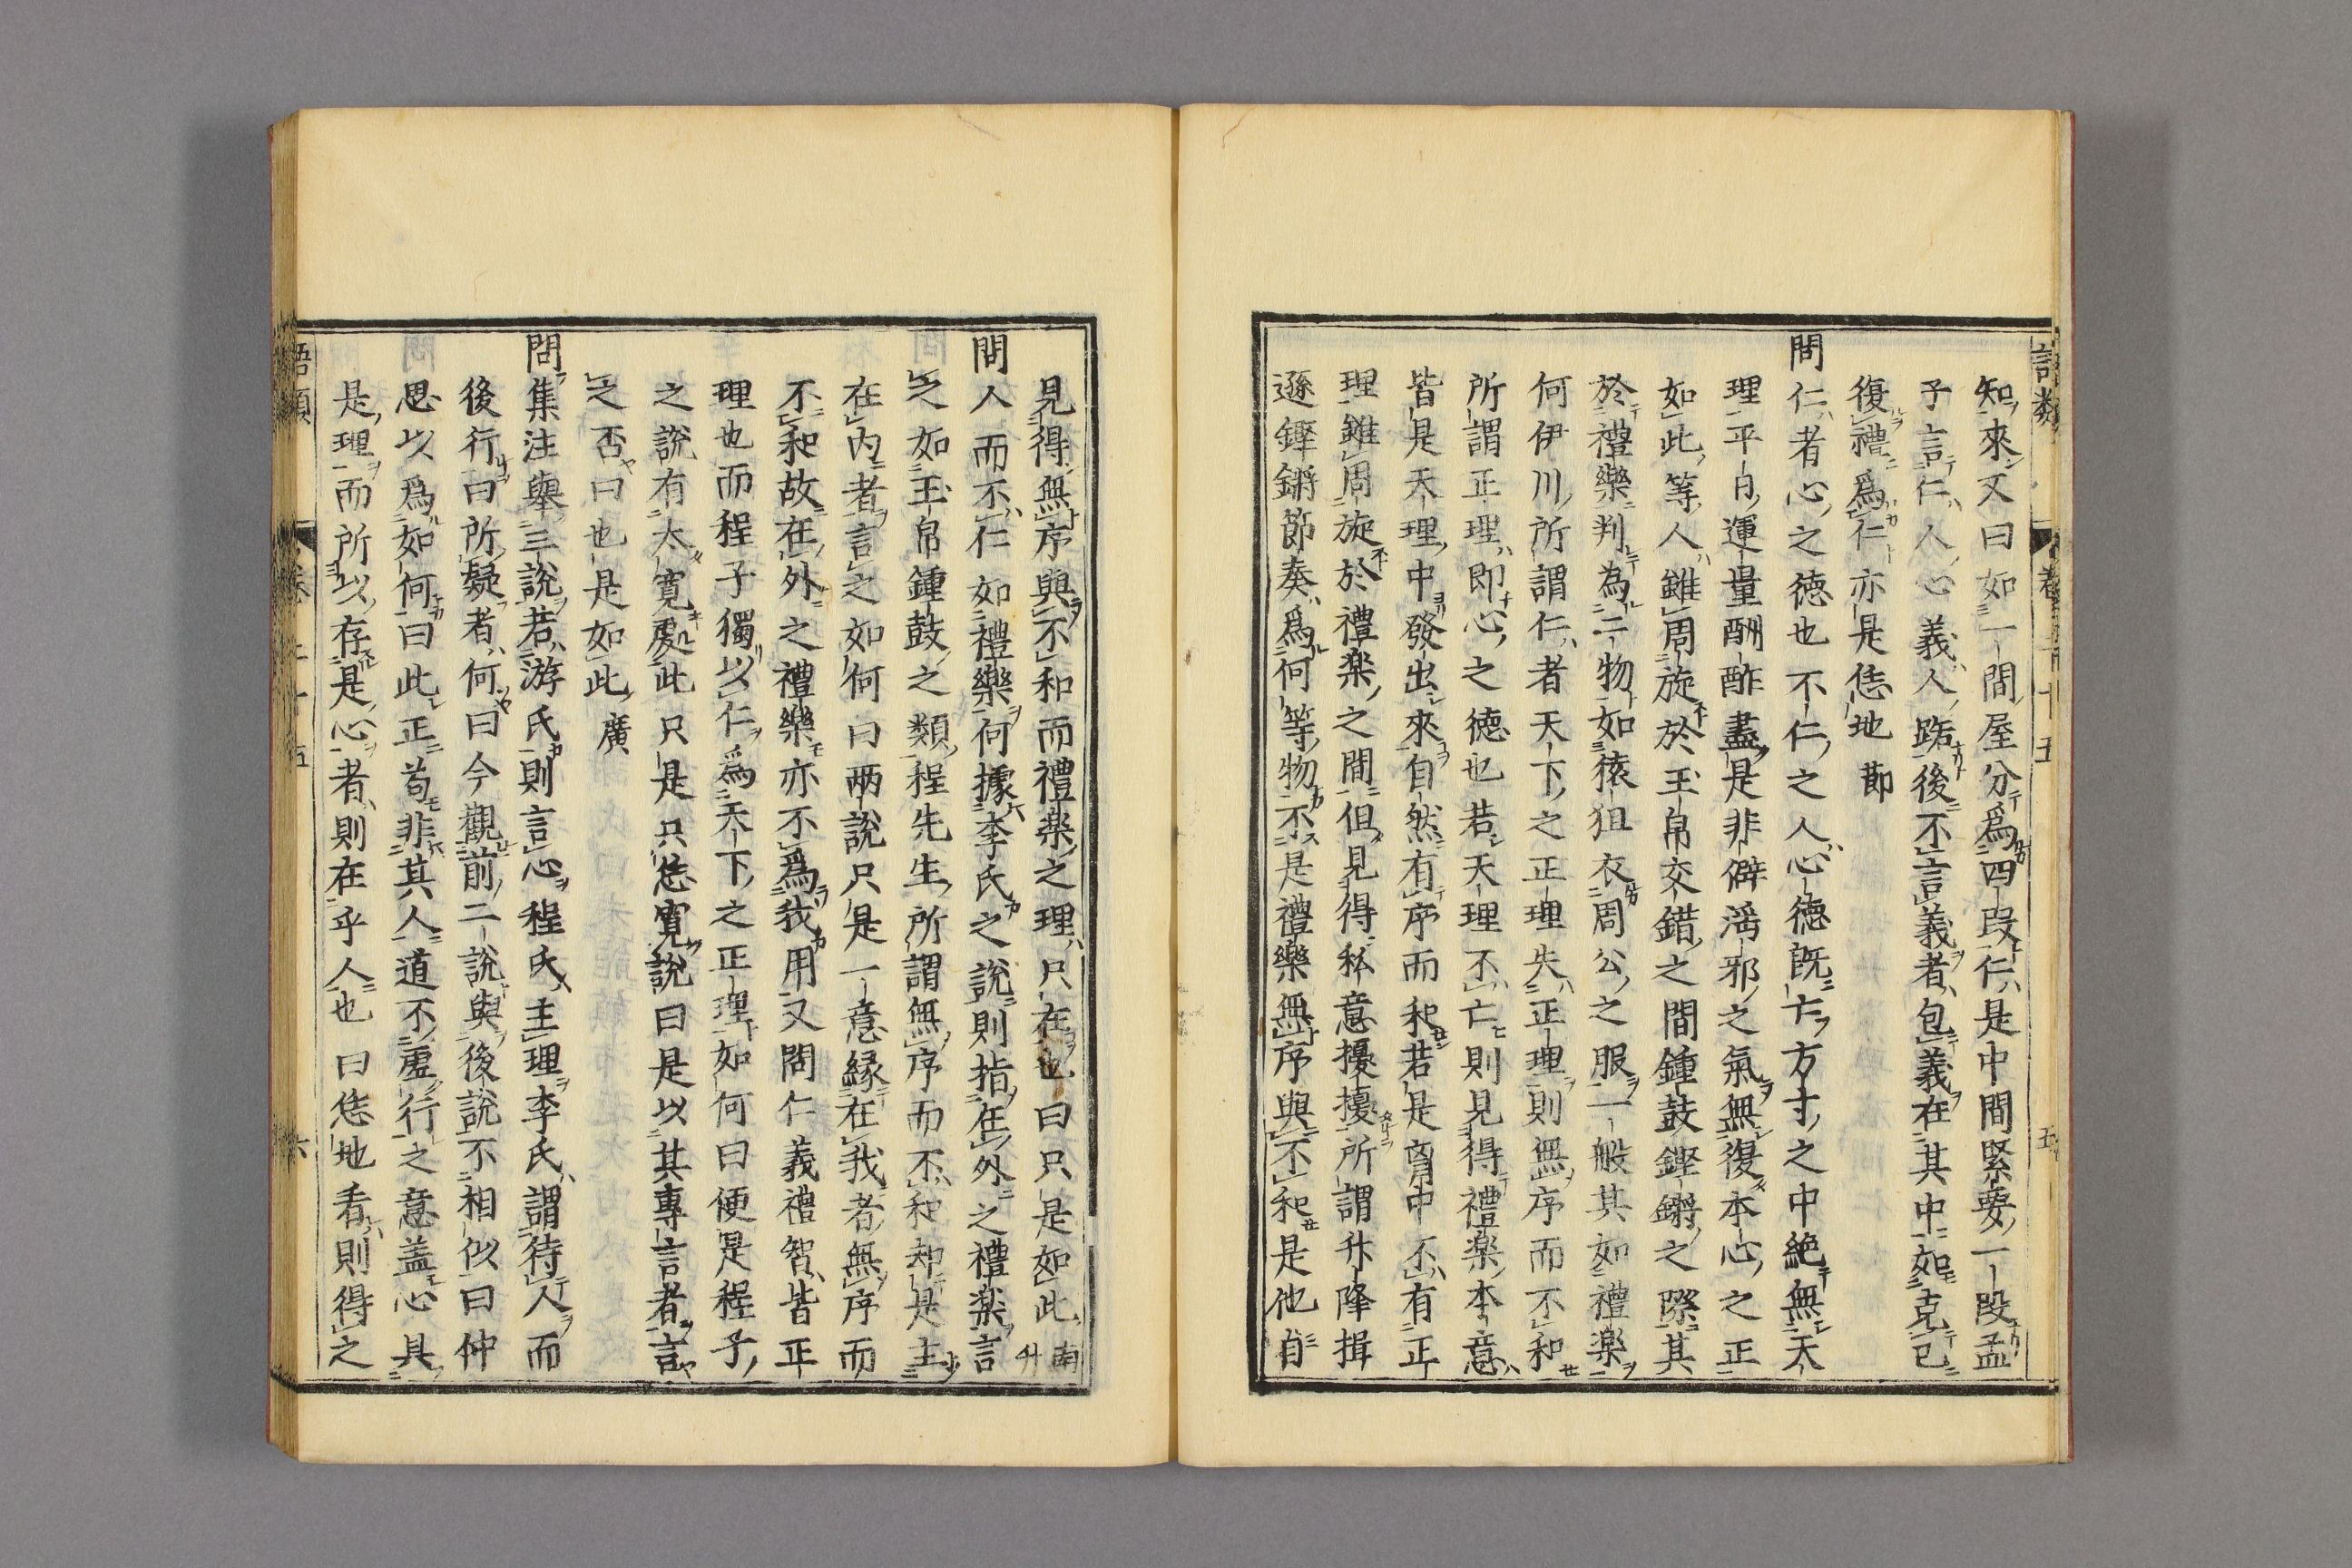 語類
卷二十五
五
知來又曰如一間屋分爲四段仁是中間緊要一段孟
子言仁人心義人路後不言義者包義在其中如克己
復禮爲仁亦是恁地 節
問仁者心之德也不仁之人心德旣亡方寸之中絶無天
理平日運量酬酢盡是非僻淫邪之氣無復本心之正
如此等人雖周旋於玉帛交錯之間鍾鼓鏗鏘之際其
於禮樂判為二物如猿狙衣周公之服一般其如禮楽
何伊川所謂仁者天下之正理失正理則無序而不和
所謂正理即心之德也若天理不亡則見得禮楽本意
皆是天理中發出來自然有序而和若是胷中不有正
理雖周旋於禮楽之間但見得私意擾擾所謂升降揖
遜鏗鏘節奏爲何等物不是禮樂無序與不和是他自
見得無序與不和而禮楽之理只在也曰只是如此 南升
問人而不仁如禮樂何據李氏之說則指在外之禮楽言
之如玉帛鍾鼓之類程先生所謂無序而不和却是主
在内者言之如何曰兩說只是一意緣在我者無序而
不和故在外之禮樂亦不爲我用又問仁義禮智皆正
理也而程子獨以仁爲天下之正理如何曰便是程子
之說有太寬處此只是只恁寬說曰是以其專言者言
之否曰也是如此 廣
問集注舉三說若游氏則言心程氏主理李氏謂待人而
後行曰所疑者何曰今觀前二說與後說不相似曰仲
思以爲如何曰此正苟非其人道不虛行之意盖心具
是理而所以存是心者則在乎人也 曰恁地看則得之
語類
卷二十五
六